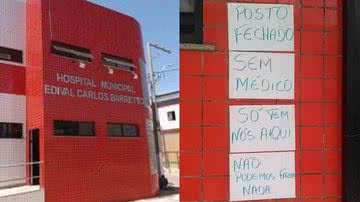 HOSPITAL MUNICIPAL
EDIVAL CARLOS BARRETTO
POSTO
FECHADO
SEM
MÉDICO
SÓ TEM
NÓS AQUI
NÃO
PODEMOS FAZER
NADA